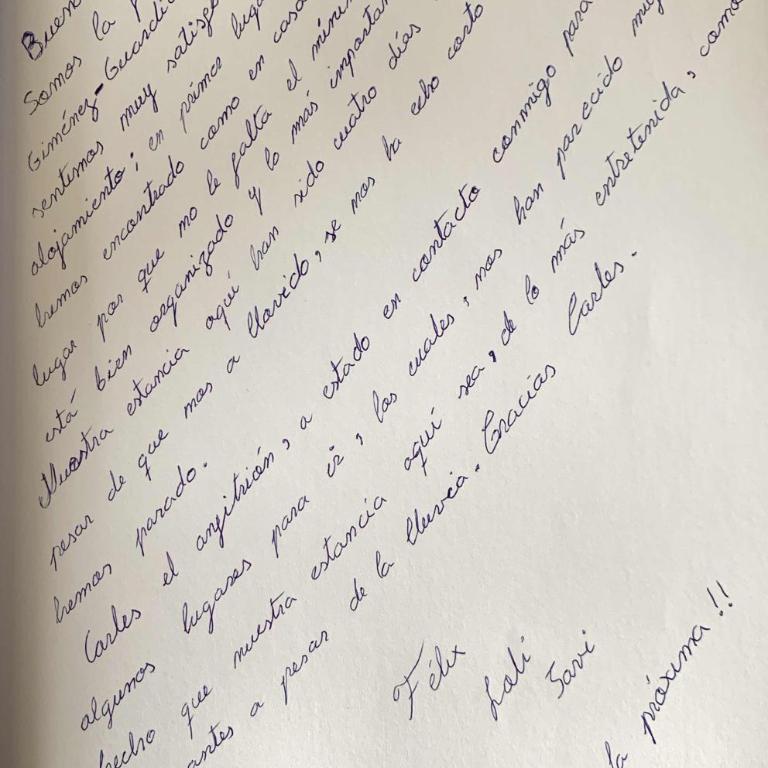 Buen
Somos la
Giménez-Guardi
sentimos muy satisfe
alojamiento; en primer luga
hemos encontrado como en casa
lugar por que no le falta el mínim
está bien organizado y lo más importan
Nuestra estancia aquí han sido cuatro días
pesar de que nos a llovido, se nos ha echo corto
hemos parado.
Carles el anfitrión, a estado en contacto conmigo para
algunos lugares para ir, los cuales, nos han parecido muy
hecho que nuestra estancia aquí sea, de lo más entretenida, como
antes a pesar de la lluvia. Gracias Carles.
Félix
Loli
Javi
la próxima!!